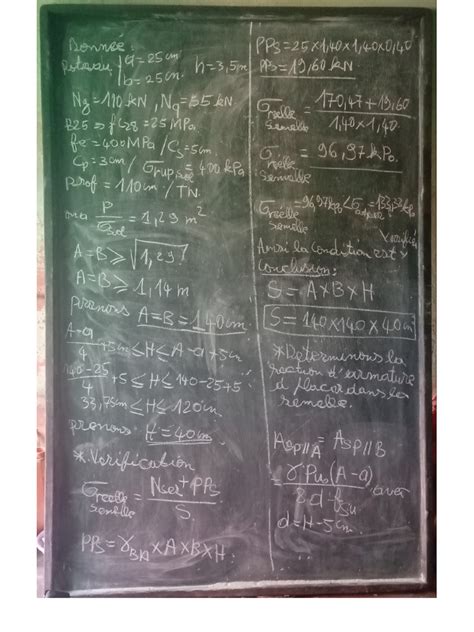 Donnée:
Poteau { a = 25cm
b = 25cm. h = 3,5m
Ng = 110 kN, Nq = 55 kN
B25 ⇒ fc28 = 25 MPa
fe = 400MPa / Cs = 5cm
Cp = 3cm / σrup,sol = 400 kPa
Prof = 110cm / TN.
P/σsol = 1,29 m²
A = B ≥ √1,29
A = B ≥ 1,14 m
prenons A = B = 140cm.
A-a/4 + 5cm ≤ H ≤ A-a+5cm
140-25/4 + 5 ≤ H ≤ 140-25+5
33,75cm ≤ H ≤ 120cm.
prenons H = 40cm
*. Verification
σreelle semelle = Nser + PPS / S.
PPS = γBA × A × B × H.
PPS = 25 × 1,40 × 1,40 × 0,40
PPS = 19,60 kN
σreelle semelle = 170,47 + 19,60 / 1,40 × 1,40.
σreelle semelle = 96,97 kPa.
σreelle semelle = 96,97 kPa < = 133,33 kPa
Ainsi la condition est verifiée
Conclusion:
S = A × B × H
S = 140 × 140 × 40cm
* Determinons la
section d'armature
à placer dans la
semelle.
Asp//A = Asp//B
= γPus(A-a) / 8 d·fsu avec
d = H - 5cm.